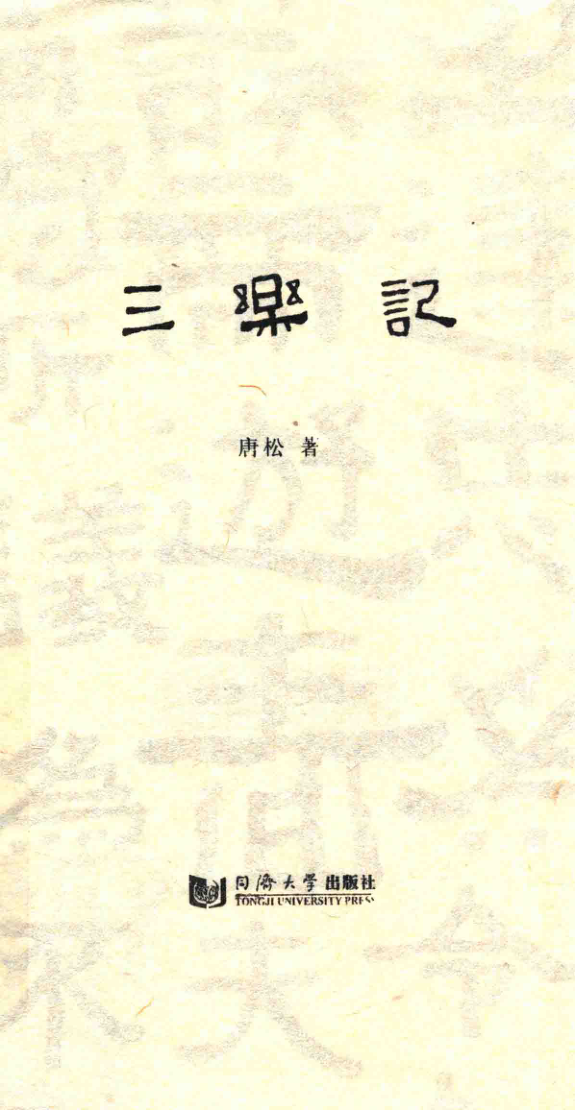 三樂記
唐松 著
同济大学出版社
TONGJI UNIVERSITY PRESS